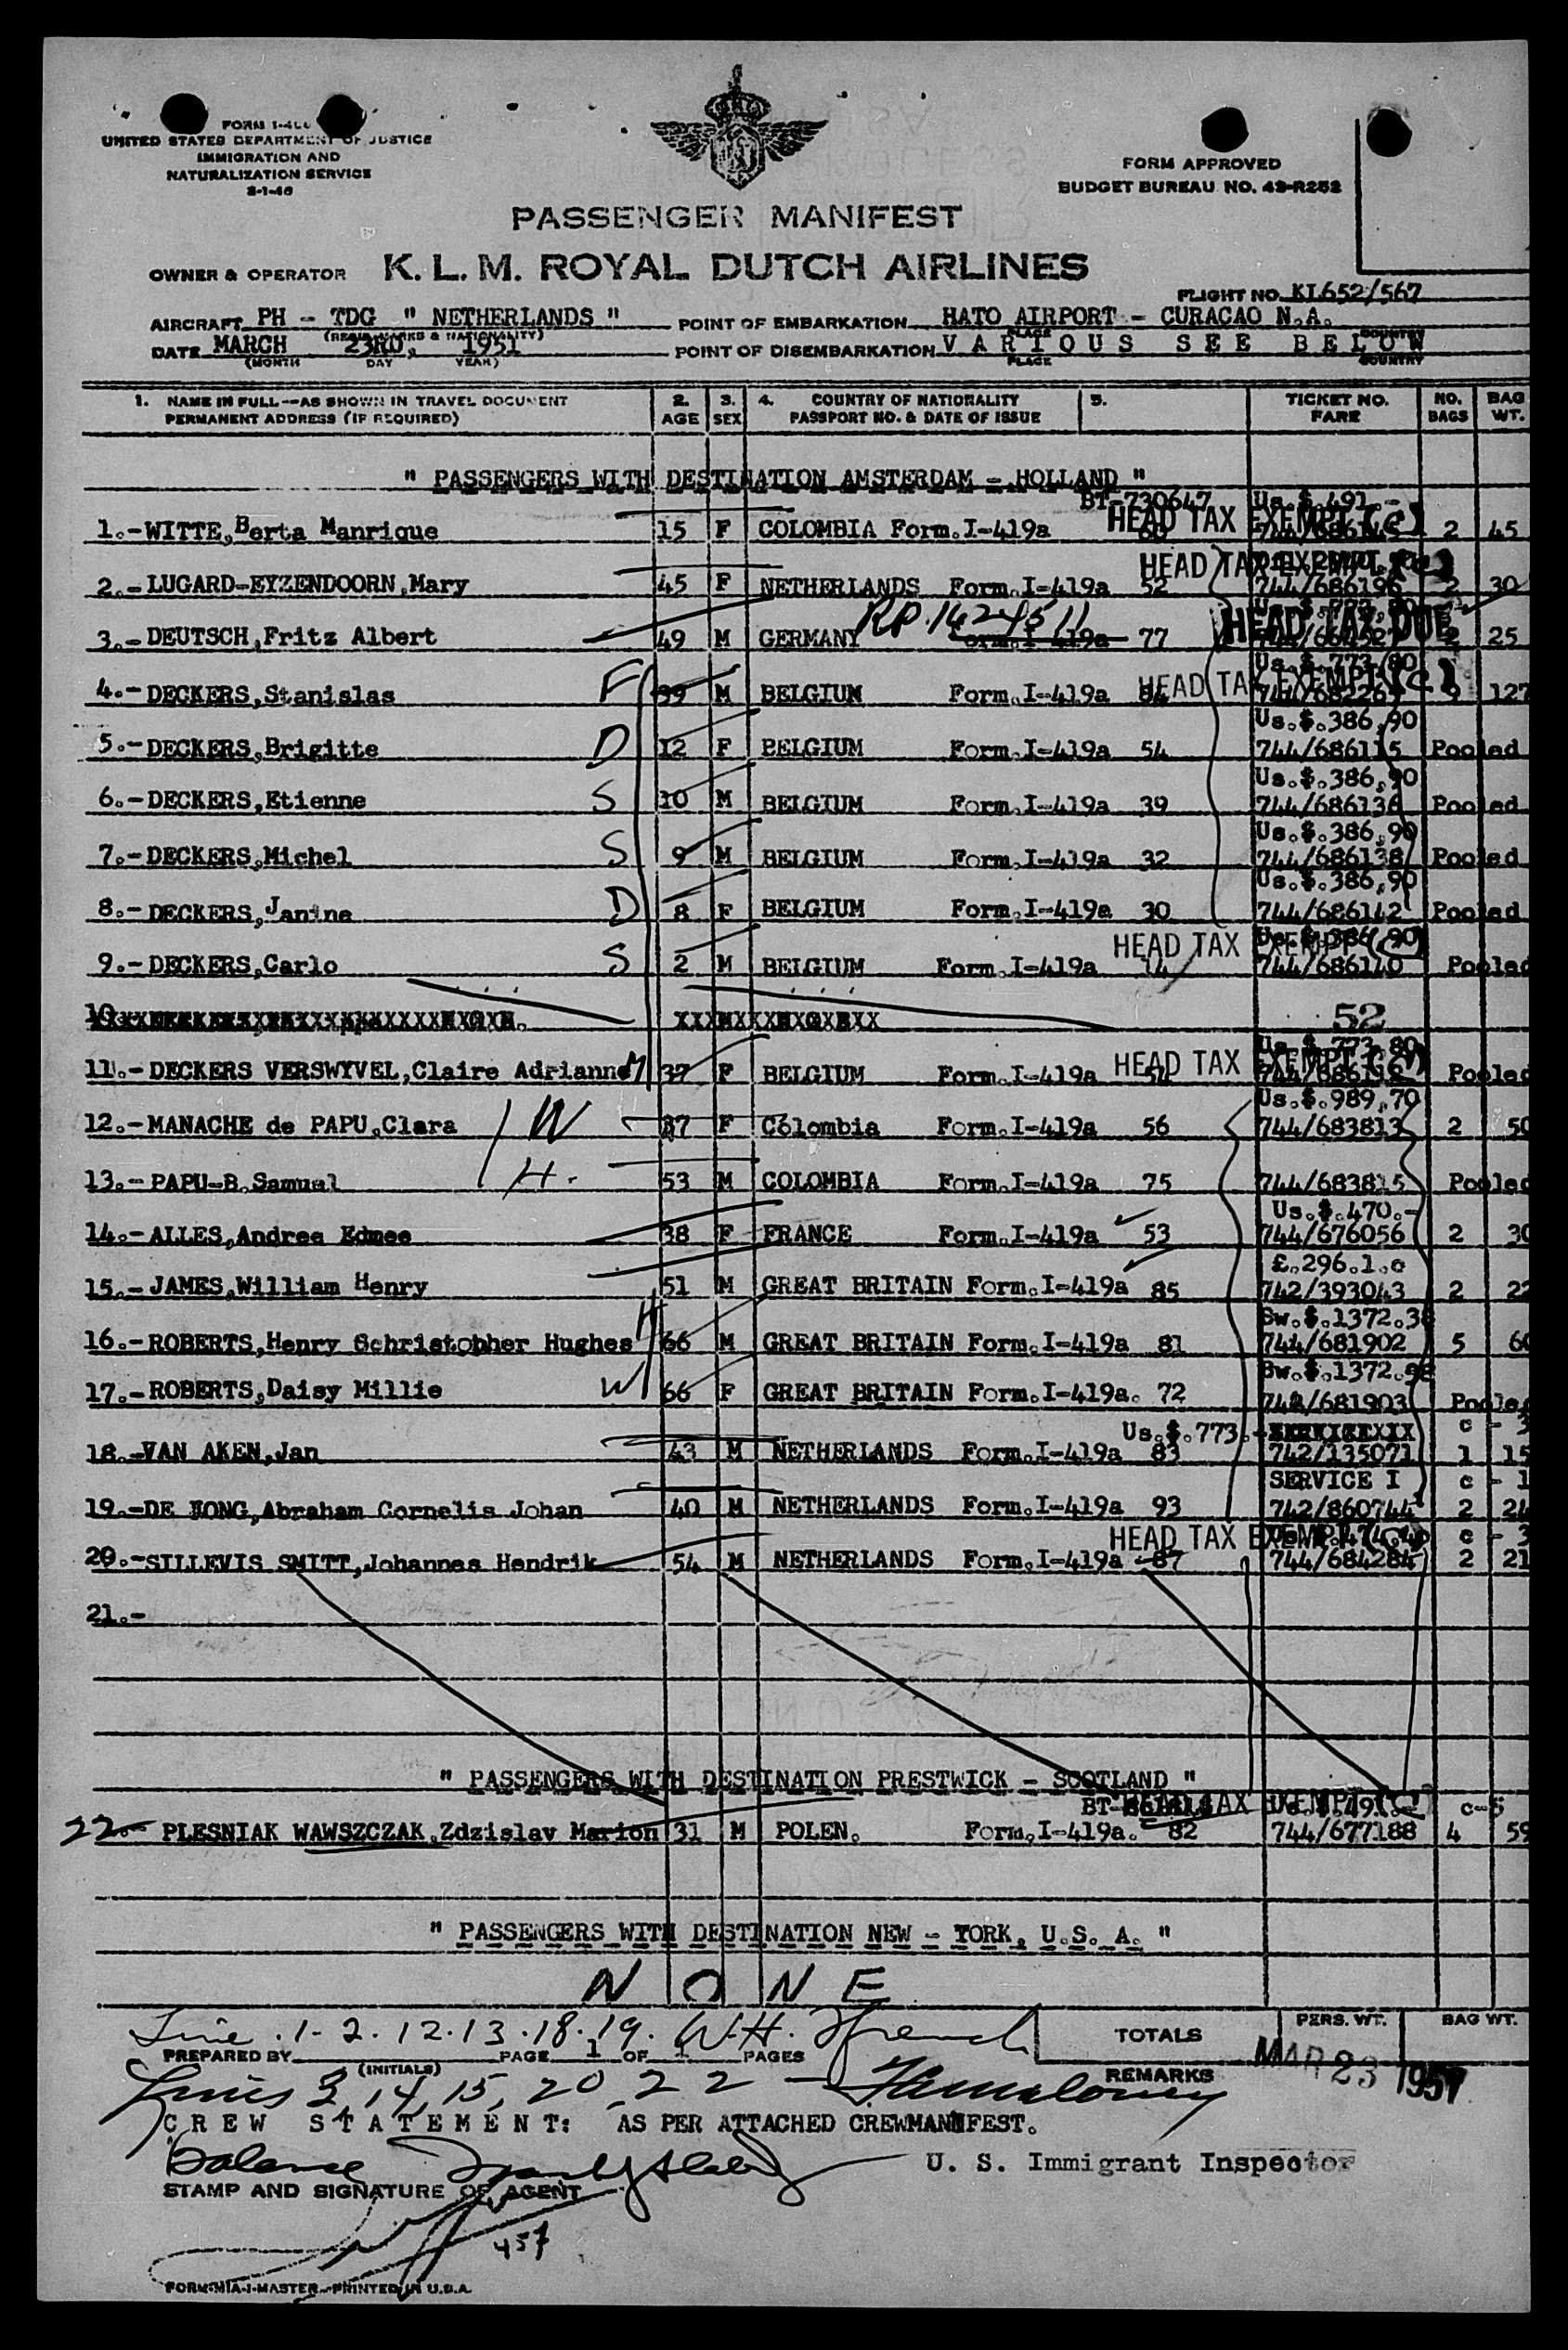 UNITED STATES DEPARTMENT OF JUSTICE
IMMIGRATION AND
NATURALIZATION SERVICE
FORM APPROVED
BUDGET BUREAU NO. 43-R252
PASSENGER MANIFEST
OWNER & OPERATOR K. L. M. ROYAL DUTCH AIRLINES
FLIGHT NO. KL652/567
AIRCRAFT PH - TDG " NETHERLANDS " POINT OF EMBARKATION HATO AIRPORT - CURACAO N.A.
DATE MARCH 23RD, 1951 POINT OF DISEMBARKATION V A R I O U S S E E B E L O W
(MONTH DAY YEAR) PLACE COUNTRY
1. NAME IN FULL--AS SHOWN IN TRAVEL DOCUMENT 2. 3. 4. COUNTRY OF NATIONALITY 5. TICKET NO. NO. BAG
PERMANENT ADDRESS (IF REQUIRED) AGE SEX PASSPORT NO. & DATE OF ISSUE FARE BAGS WT.
" PASSENGERS WITH DESTINATION AMSTERDAM - HOLLAND "
BT-730647 Us.$.491.-
1.- WITTE,Berta Manrique 15 F COLOMBIA Form.I-419a HEAD TAX EXEMPT (c) 2 45
HEAD TAX EXEMPT
2.- LUGARD-EYZENDOORN,Mary 45 F NETHERLANDS Form.I-419a 52 744/686196 2 30
RP.1624511 HEAD TAX DUE
3.- DEUTSCH,Fritz Albert 49 M GERMANY Form.I-419a 77 2 25
Us.$.773,80
4.- DECKERS,Stanislas F 39 M BELGIUM Form.I-419a 84 HEAD TAX EXEMPT (c) 127
Us.$.386,90
5.- DECKERS,Brigitte D 12 F BELGIUM Form.I-419a 54 744/686115 Pooled
Us.$.386,90
6.- DECKERS,Etienne S 10 M BELGIUM Form.I-419a 39 744/686136 Pooled
Us.$.386,90
7.- DECKERS,Michel S 9 M BELGIUM Form.I-419a 32 744/686138 Pooled
Us.$.386,90
8.- DECKERS,Janine D 8 F BELGIUM Form.I-419a 30 744/686142 Pooled
HEAD TAX EXEMPT (c) Us.$.386,90
9.- DECKERS,Carlo S 2 M BELGIUM Form.I-419a 14 744/686140 Pooled
52
HEAD TAX EXEMPT (c) Us.$.773,80
11.- DECKERS VERSWYVEL,Claire Adrianne M 37 F BELGIUM Form.I-419a Pooled
Us.$.989,70
12.- MANACHE de PAPU,Clara W 37 F Colombia Form.I-419a 56 744/683813 2 50
13.- PAPU-B.Samuel H. 53 M COLOMBIA Form.I-419a 75 744/683815 Pooled
Us.$.470.-
14.- ALLES,Andree Edmee 38 F FRANCE Form.I-419a 53 744/676056 2 30
£.296.1.0
15.- JAMES,William Henry 51 M GREAT BRITAIN Form.I-419a 85 742/393043 2 22
Sw.$.1372.38
16.- ROBERTS,Henry Schristopher Hughes H 66 M GREAT BRITAIN Form.I-419a 81 744/681902 5 60
17.- ROBERTS,Daisy Millie W 66 F GREAT BRITAIN Form.I-419a. 72 Pooled
Us.$.773.- c - 3
18.-VAN AKEN,Jan 43 M NETHERLANDS Form.I-419a 83 742/135071 1 15
SERVICE I c - 1
19.-DE JONG,Abraham Cornelis Johan 40 M NETHERLANDS Form.I-419a 93 742/860744 2 24
HEAD TAX EXEMPT c - 3
20.-SILLEVIS SMITT,Johannes Hendrik 54 M NETHERLANDS Form.I-419a 87 744/684284 2 21
21.-
" PASSENGERS WITH DESTINATION PRESTWICK - SCOTLAND "
HEAD TAX EXEMPT (c) c-5
22.- PLESNIAK WAWSZCZAK,Zdzislav Marion 31 M POLEN. Form.I-419a. 82 744/677188 4 59
" PASSENGERS WITH DESTINATION NEW - YORK, U.S. A. "
N O N E
Line .1-2.12.13.18.19. W.H. French
TOTALS PERS. WT. BAG WT.
PREPARED BY (INITIALS) PAGE 1 OF 1 PAGES
MAR 23 1951
REMARKS
Lines 3, 14, 15, 20, 22 -
C R E W S T A T E M E N T: AS PER ATTACHED CREWMANIFEST.
Balance
U. S. Immigrant Inspector
STAMP AND SIGNATURE OF AGENT
457
FORM-MIA-1-MASTER--PRINTED IN U.S.A.